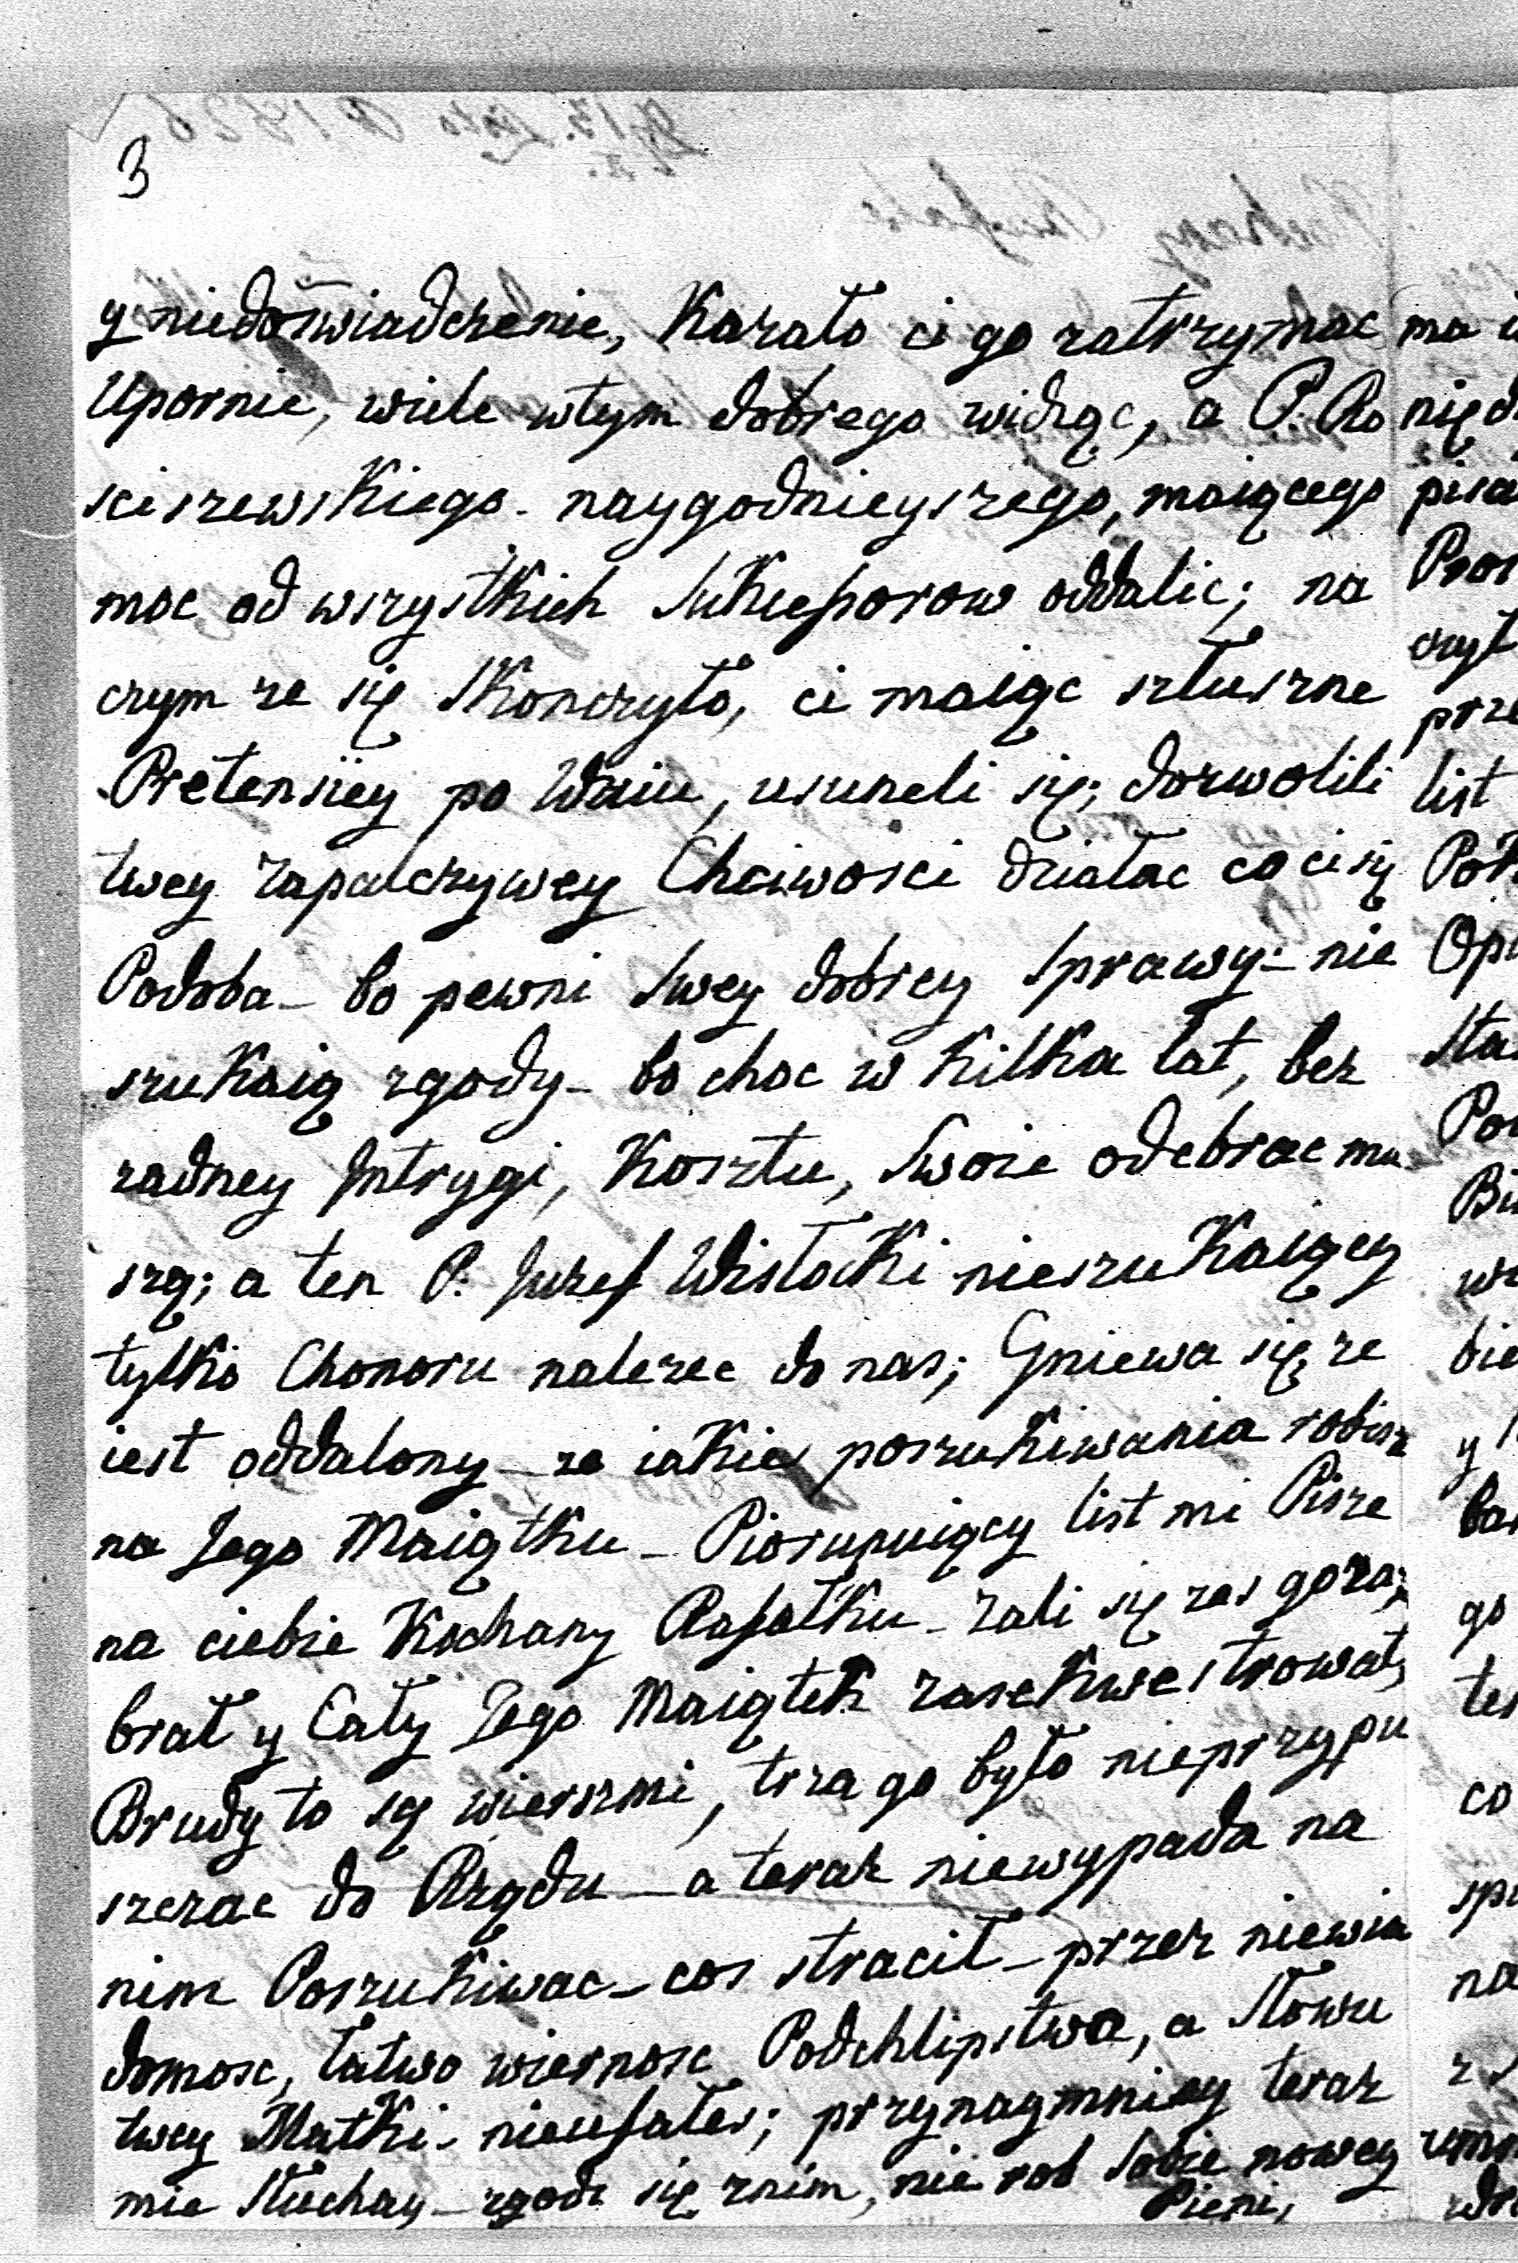 3
y niedoswiadczenie, Kazało ci go zatrzymac
Upornie, wiele wtym dobrego widząc, a P. Ro
sciszewskiego - naygodnieyszego, maiącego
moc od wszystkich Sukcessorow oddalic; na
czym ze się skonczyło, ci maiąc słuszne
Pretensiey po Waiu, usuneli się; dozwolili
twey zapalczywey Chciwosci działac co ci się
Podoba - bo pewni swey dobrey sprawy - nie
szukaią zgody - bo choc w kilka lat, bez
zadney Intrygi, Kosztu, Swoie odebrac mu
szą; a ten P. Juzef Wisłocki nieszukaiący
tylko Chonoru nalezec do nas; Gniewa się, ze
iest oddalony - ze iakies poszukiwania robisz
na Jego Maiątku - Piorunuiący list mi Pisze
na ciebie Kochany Rafałku - zali się zes go za,
brał y Cały Jego Maiątek zasekwestrował,
Brudy to są wierszmi, trza go było nieprzypu
szczac do Rządu - a teraz niewypada na
nim Poszukiwac - cos stracił - przez niewia
domosc, łatwo wiernosc Podchlipstwa, a słowu
twey Matki - nieufałes; przynaymniey teraz
mie słuchay - zgodz się znim, nie rob sobie nowey
Pieni,